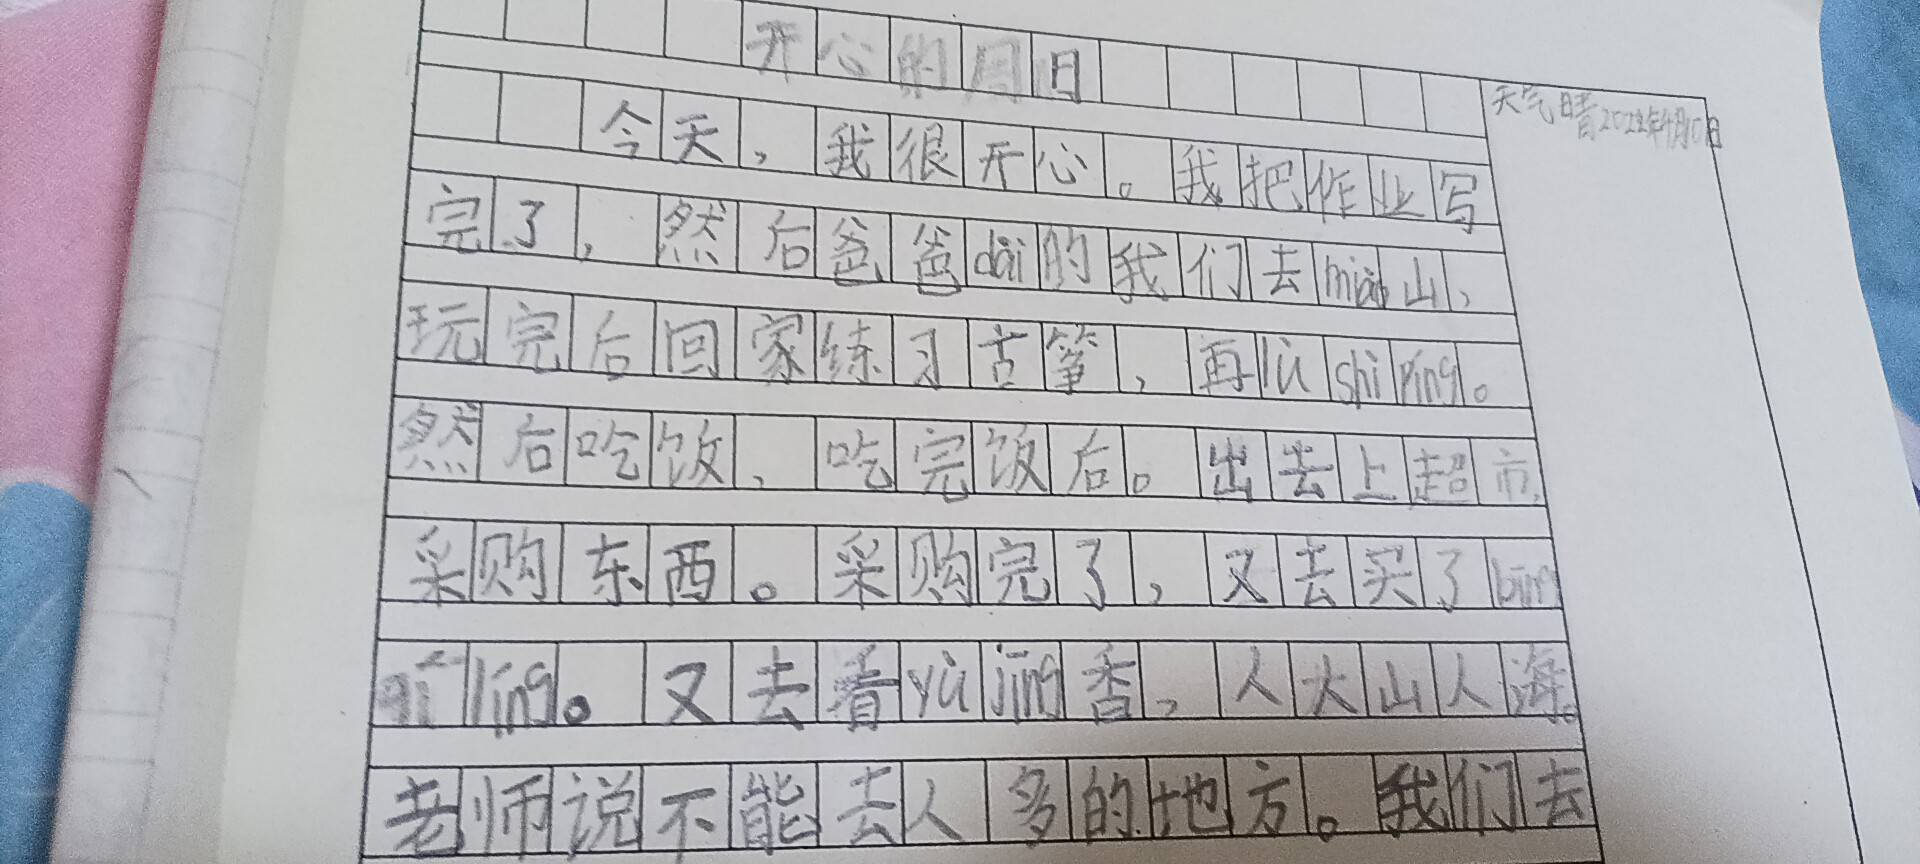 开心的周日
天气晴2022年4月10日
今天，我很开心。我把作业写
完了，然后爸爸dài的我们去miào山，
玩完后回家练习古筝，再lù shì píng。
然后吃饭、吃完饭后。出去上超市，
采购东西。采购完了，又去买了bīng
qí líng。又去看yù jīng香，人大山人海。
老师说不能去人多的地方。我们去